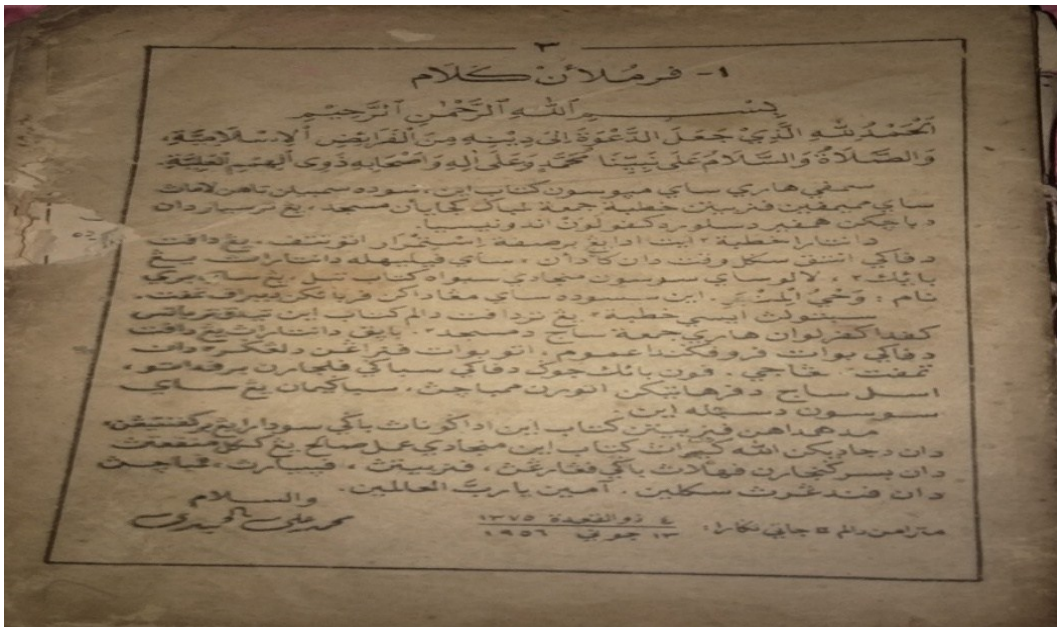 ٣
١- فرمُلاءنْ كَلَام
بِسْمِ ٱللهِ ٱلرَّحْمٰنِ ٱلرَّحِيْمِ
اَلْحَمْدُ للهِ الَّذِيْ جَعَلَ الدَّعْوَةَ اِلىٰ دِيْنِهِ مِنَ الْفَرَايِضِ الْاِسْلَامِيَّةِ،
وَالصَّلَاةُ وَالسَّلَامُ عَلىٰ نَبِيِّنَا مُحَمَّدٍ وَعَلىٰ اٰلِهِ وَاَصْحَابِهِ ذَوِى الْهِمَمِ الْعَلِيَّةِ.
سمڤي هاري ساي ميوسون كتاب اين، سوده سمبيلن تاهن لامات
ساي مميمڤين ڤنربيتن خطبة جمعة اونتوق كجايأن مسجد، يڠ ترسيار دان
دباچكن همڤير دسلوره كڤولون اندونيسيا.
دانتارا خطبة٢ ايت ادا يڠ برصفة استمرار اتو تتڤ، يڠ داڤت
دڤاكي انتق سݢل وقت دان كادأن، ساي ڤيليهله دانتارات يڠ
بائك٢، لالو ساي سوسون منجادي سبواه كتاب يڠ ساي بري
نام: وَحْيُ الْمِنْبَر. اين سسوده ساي مڠاداكن ڤربائكن دمان ڤرلو.
سبتولث ايسي خطبة٢ يڠ تردا ڤت دالم كتاب اين تيدق تربا تس
كڤدا كڤرلوان هاري جمعة ساج دمسجد٢، بايق دانتارات يڠ داڤت
دڤاكي بوات ڤروڤݢندا عموم، اتو بوات ڤنراڠن دلڠݢر٢ دان
تمڤت٢ مڠاجي. ڤون بائك جوݢ دڤاكي سباݢي ڤلجارن برڤداتو،
اسل ساج دڤرهاتيكن اتورن ممباچث، سباݢيمان يڠ ساي
سوسون دسبله اين.
مدهمداهن ڤنربيتن كتاب اين ادا ݢونات باݢي سودارا يڠ بركڤنتيڠن،
دان دجاديكن الله كيرات كتاب اين منجادي عمل صالح يڠ ككل منفعتث
دان بسر ݢنجارن ڤهلات باݢي ڤڠارڠث، ڤنربيتث، ڤپيارث، ڤمباچث
دان ڤندڠرث سكلين. آمين يا ربَّ العالمين.
والسلام
محمد علي الحميدي
مترامن دالم ◻ جاتي نݢارا: ٤ ذوالقعدة ١٣٧٥
١٣ جوني ١٩٥٦